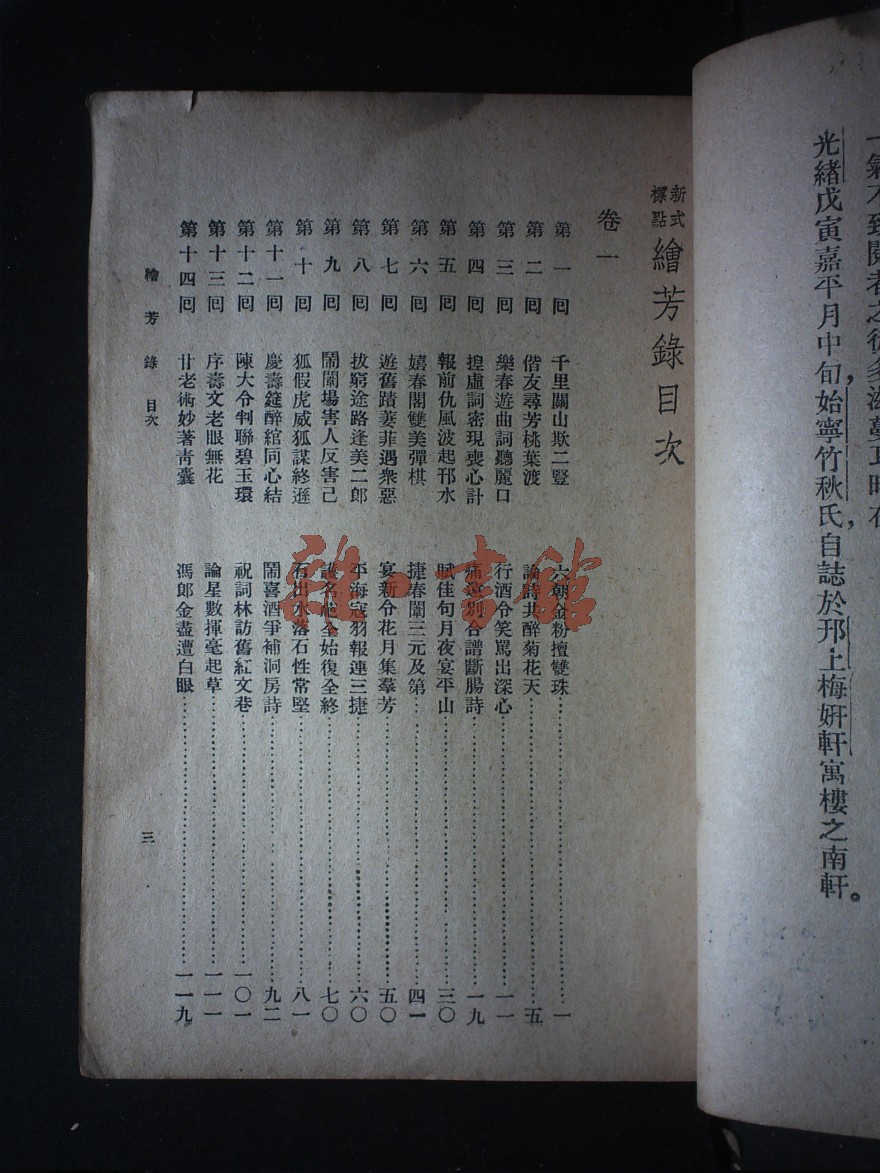 光緒戊寅嘉平月中旬始寧竹秋氏，自誌於邗上梅妍軒寓樓之南軒。
新式標點 繪芳錄目次
卷一
第一回 千里關山欺二豎 六朝金粉擅雙珠 一
第二回 偕友尋芳桃葉渡 論詩共醉菊花天 五
第三回 樂春遊曲詞聽麗口 行酒令笑罵出深心 一一
第四回 捏虛詞密現喪心計 痛遠別合譜斷腸詩 一九
第五回 報前仇風波起邗水 賦佳句月夜宴平山 三〇
第六回 嬉春閣雙美彈棋 捷春闈三元及第 四一
第七回 遊舊蹟萋菲遇衆惡 宴新令花月集羣芳 五〇
第八回 拔窮途路逢美二郎 平海寇羽報連三捷 六〇
第九回 鬧闈場害人反害己 護名他全始復全終 七〇
第十回 狐假虎威狐謀終遜 石出水落石性常堅 八一
第十一回 慶壽筵醉綰同心結 鬧喜酒爭補洞房詩 九二
第十二回 陳大令判聯碧玉環 祝詞林訪舊紅文巷 一〇一
第十三回 序壽文老眼無花 論星數揮毫起草 一一一
第十四回 甘老術妙著靑囊 馮郎金盡遭白眼 一一九
繪芳錄 目次
三
雜·書館